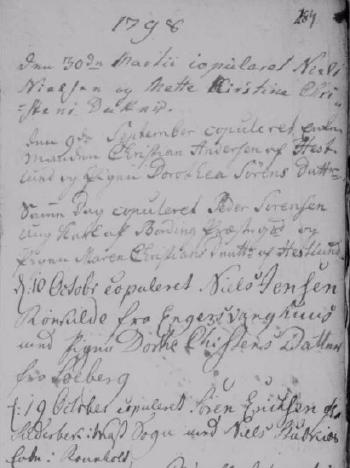 1798
184
den 30de Martii copuleret Niels
Nielsen og Mette Kirstine Chri-
-stens Datter.
den 9de September copuleret
Manden Christian Andersen af Hest-
lund og Pigen Dorothea Sørens Dattr
Samme Dag copuleret Peder Sørensen
ung Karl af Bording Præstgrd og
Pigen Maren Christians Dattr af Hestlund
d: 10 Octobr copuleret Niels Jensen
fra Engesvang Huus
med Pigen Dorthe Christens Datter
fra
d: 19 October copuleret Søren
Sogn med Niels